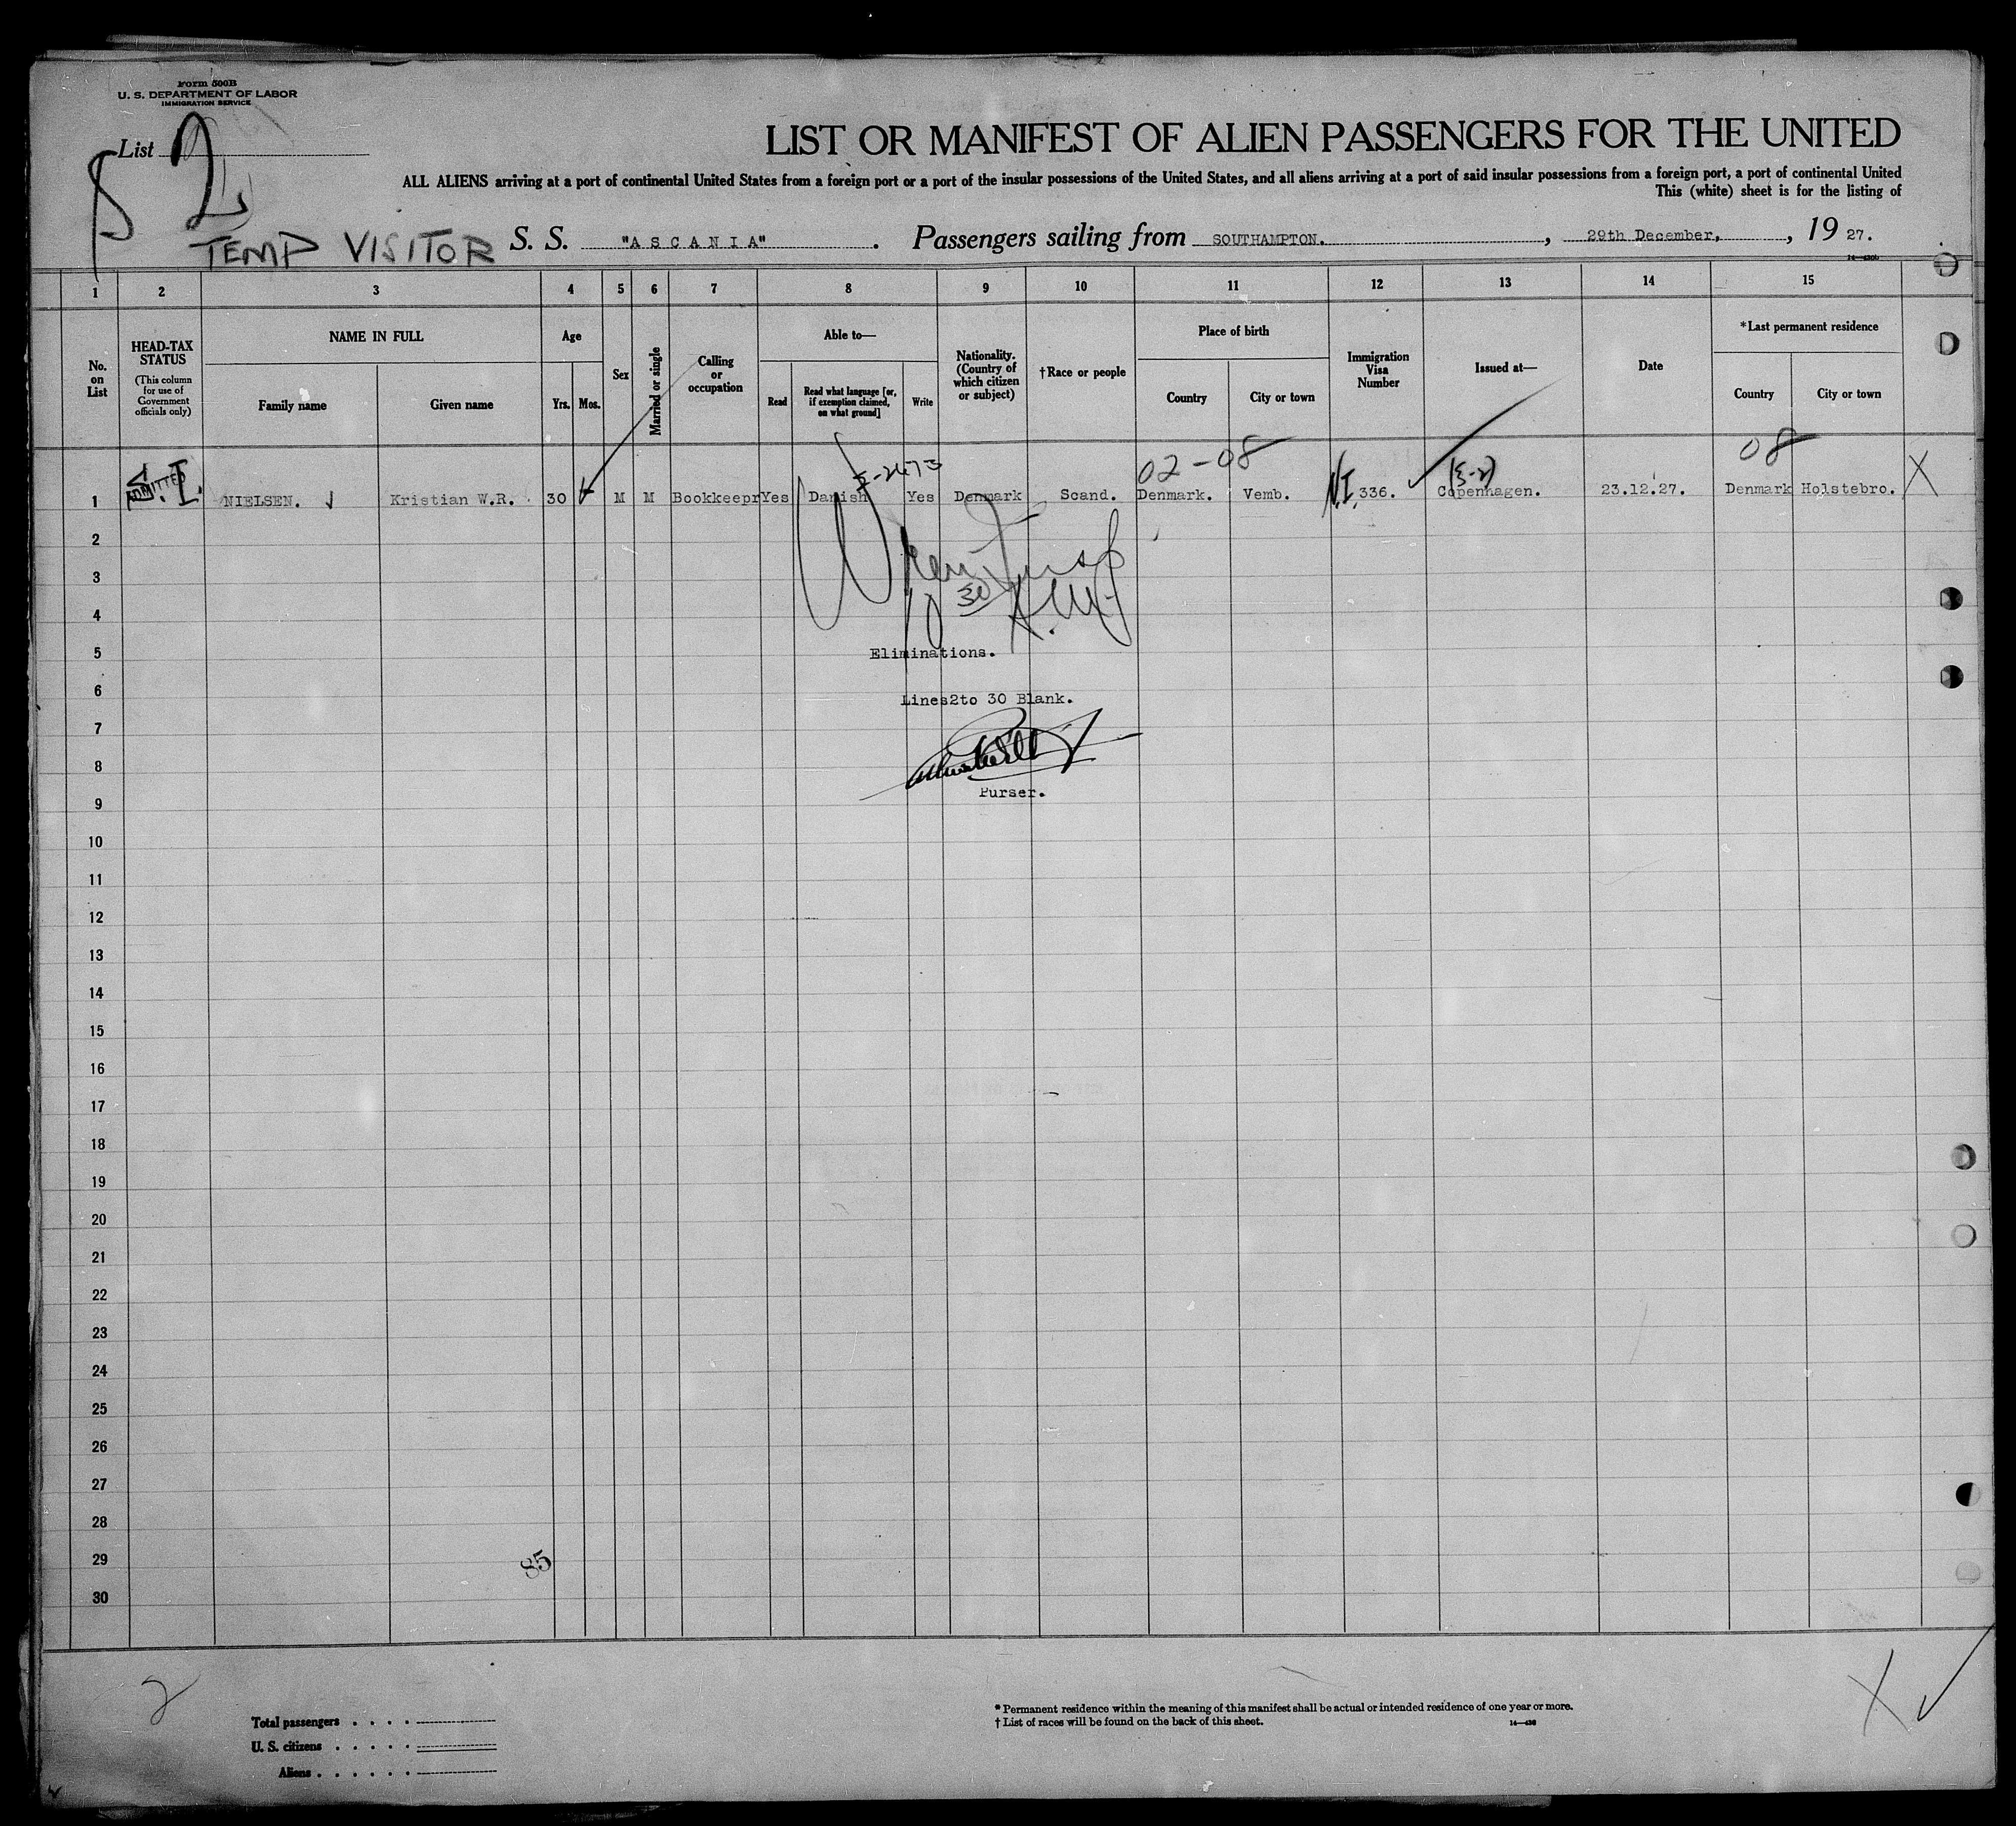 Form 500B
U. S. DEPARTMENT OF LABOR
IMMIGRATION SERVICE
List 2
LIST OR MANIFEST OF ALIEN PASSENGERS FOR THE UNITED
ALL ALIENS arriving at a port of continental United States from a foreign port or a port of the insular possessions of the United States, and all aliens arriving at a port of said insular possessions from a foreign port, a port of continental United
This (white) sheet is for the listing of
TEMP VISITOR S. S. "ASCANIA". Passengers sailing from SOUTHAMPTON., 29th December,, 19 27.
1 2 3 4 5 6 7 8 9 10 11 12 13 14 15
No. on List
HEAD-TAX STATUS
(This column for use of Government officials only)
NAME IN FULL
Family name Given name
Age
Yrs. Mos.
Sex
Married or single
Calling or occupation
Able to—
Read
Read what language [or, if exemption claimed, on what ground]
Write
Nationality. (Country of which citizen or subject)
†Race or people
Place of birth
Country City or town
Immigration Visa Number
Issued at—
Date
*Last permanent residence
Country City or town
02-08 08
S.I. ADMITTED
1 NIELSEN. Kristian W.R. 30 M M Bookkeepr Yes Danish Yes Denmark Scand. Denmark. Vemb. N.I. 336. Copenhagen. 23.12.27. Denmark Holstebro. X
2
3
30
4
5
Eliminations.
6
Lines2to 30 Blank.
7
8
Purser.
9
10
11
12
13
14
15
16
17
18
19
20
21
22
23
24
25
26
27
28
29
85
30
2
X
Total passengers
U. S. citizens
Aliens
* Permanent residence within the meaning of this manifest shall be actual or intended residence of one year or more.
† List of races will be found on the back of this sheet.